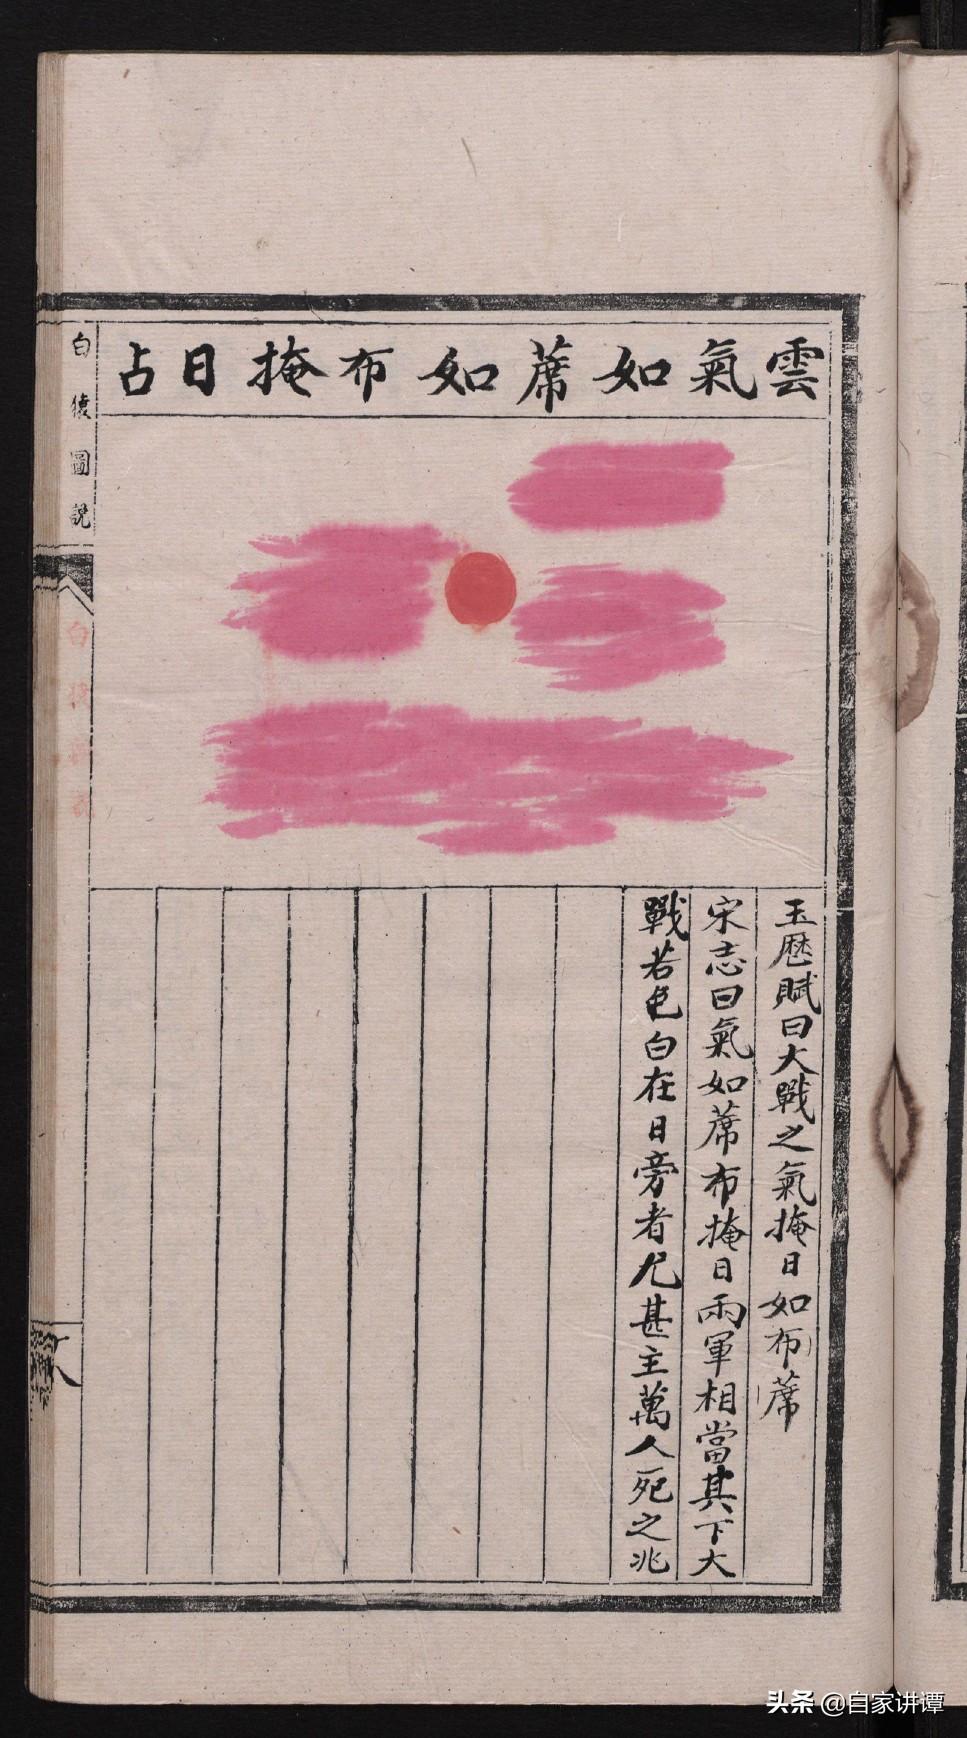 雲氣如蓆如布掩日占
玉歷賦曰大戰之氣掩日如布蓆
宋志曰氣如蓆布掩日兩軍相當其下大
戰若色白在日旁者尤甚主萬人死之兆
白猿圖說
八
头条 @自家讲谭